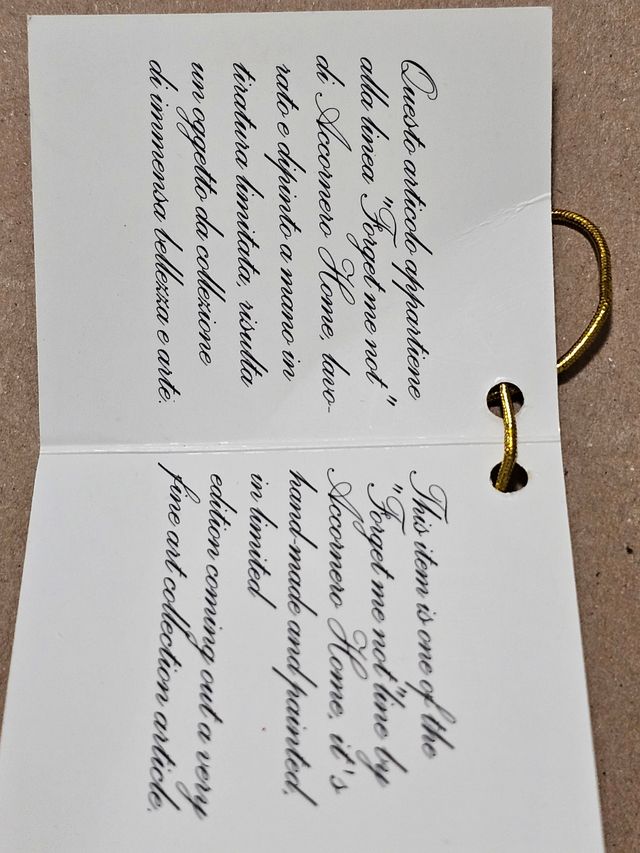 Questo articolo appartiene
alla linea "Forget me not"
di Accornero Home, lavo-
rato e dipinto a mano in
tiratura limitata, risulta
un oggetto da collezione
di immensa bellezza e arte.
This item is one of the
"Forget me not" line by
Accornero Home, it's
hand-made and painted,
in limited
edition coming out a very
fine art collection article.